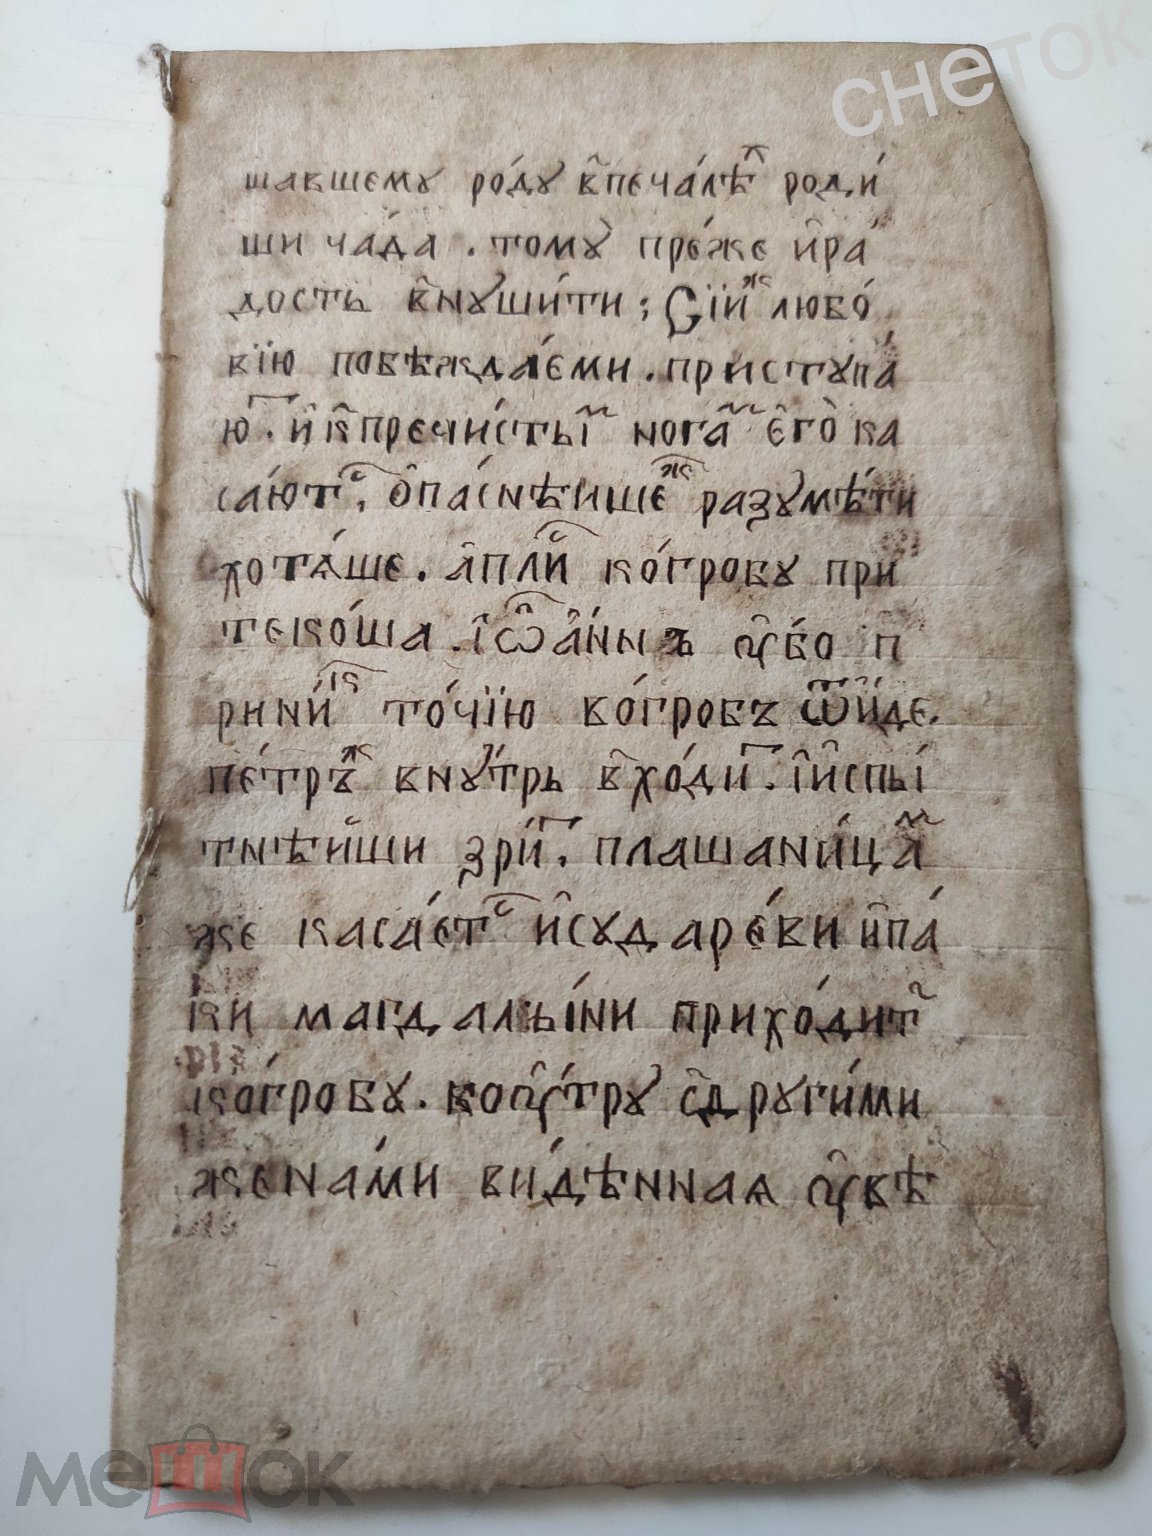 снеток
шавшему ро́ду в̾печа́лѣⷯ роди́
ши ча́да . тому пре́же и҆ра́
дость в̾нꙋши́ти ; Сїиⷤ любо́
вїю побѣжда́еми . приступа́
юⷮ . и҆ к̾пречи́стыⷨ нога́ⷨ є҆го̀ ка
са́ютⷭ҇ , ѻ҆па́снѣишеⷤ разумѣ́ти
хотѧ́ще . а҆пⷭ҇ли́ ко́гробу при
теко́ша . і҆ѡ҆а́ннъ ᲂу҆́бо п
рини́к̾ то́чїю во́гробъ ѿи́де .
пе́тръⷤ вну́трь в̾хо́диⷮ . і҆и҆спы́
тнѣиши зри́ⷮ . плащани́цаⷨ
же каса́етⷭ҇ и҆сударе́ви и҆па́
ки магдалы́ни прихо́дитⷭ
ко́гробу . коᲂу҆́тру с̾други́ми
жена́ми ви́дѣннаѧ ᲂу҆вѣ
мешок